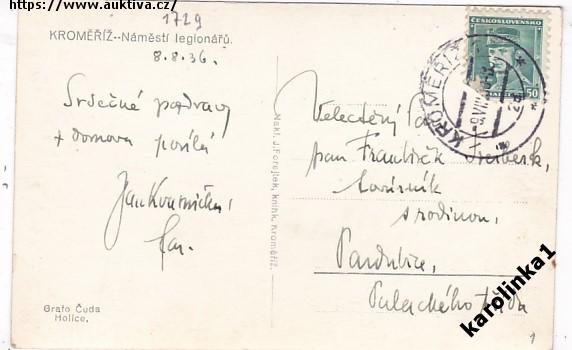 https://www.auktiva.cz/
1729
KROMĚŘÍŽ--Náměstí legionářů.
8.8.36.
Srdečné pozdravy
z domova posílá
Jan
ČESKOSLOVENSKO
50
KROMĚŘÍŽ
Nakl. J. Forejtek, knihk. Kroměříž.
Velectěný
pan František
továrník
s rodinou,
Pardubice,
Palackého třída
Grafo Čuda
Holice.
karolinka1
1